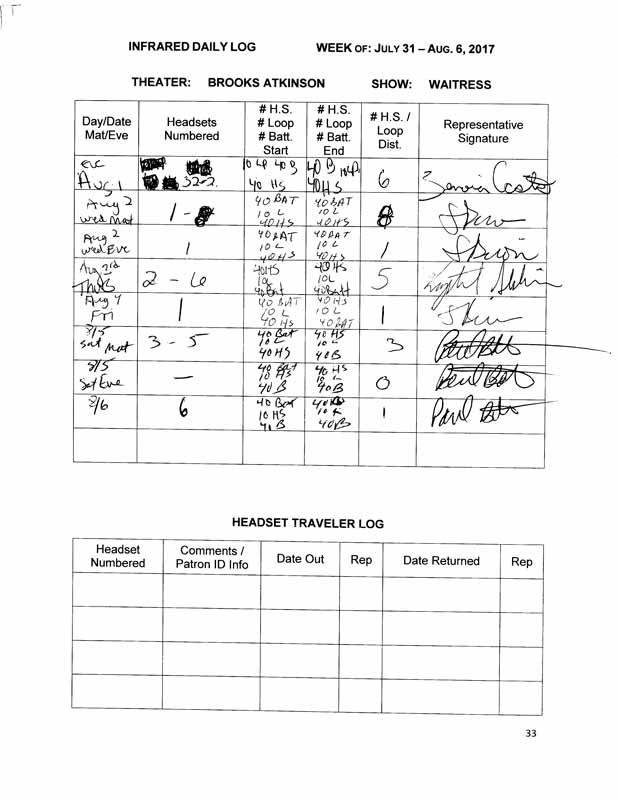 INFRARED DAILY LOG WEEK OF: JULY 31 – AUG. 6, 2017
THEATER: BROOKS ATKINSON SHOW: WAITRESS
Day/Date Mat/Eve
Headsets Numbered
# H.S. # Loop # Batt. Start
# H.S. # Loop # Batt. End
# H.S. / Loop Dist.
Representative Signature
Eve Aug 1
40 HS
40HS
6
Aug 2 Wed Mat
1 -
40 BAT 10 L 40HS
40BAT 10 L 40HS
8
Aug 2 Wed Eve
1
40BAT 10 L 40HS
40BAT 10 L 40HS
1
Aug 3rd Thurs
2 - 6
40HS 10L 40Bat
40HS 10L 40Batt
5
Aug 4 Fri
1
40 BAT 10 L 40 HS
40HS 10 L 40BAT
1
8/5 Sat Mat
3 - 5
40 Bat 10 L 40HS
40 HS 10 L 40B
3
8/5 Sat Eve
—
40 Bat 10 HS 40 B
40 HS 10 L 40B
0
8/6
6
40 Bat 10 HS 40 B
10 L 40B
1
Paul
HEADSET TRAVELER LOG
Headset Numbered
Comments / Patron ID Info
Date Out
Rep
Date Returned
Rep
33